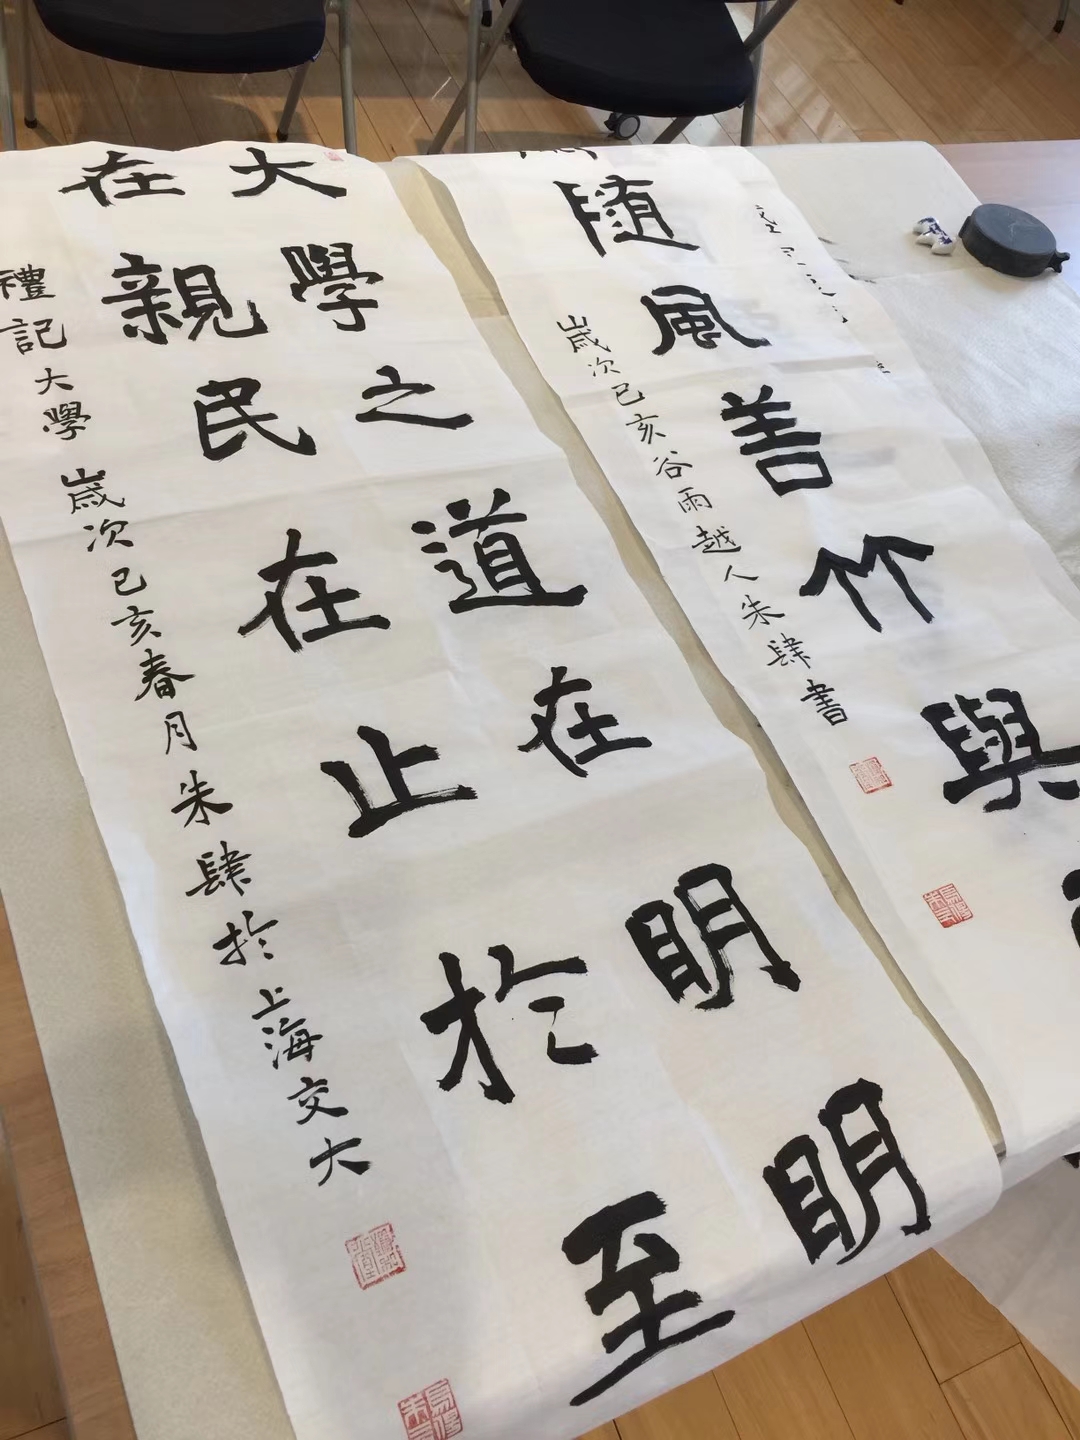 大學之道在明明
在親民在止於至
禮記大學 歲次己亥春月朱肆於上海交大
與竹善風隨
歲次己亥谷雨越人朱肆書